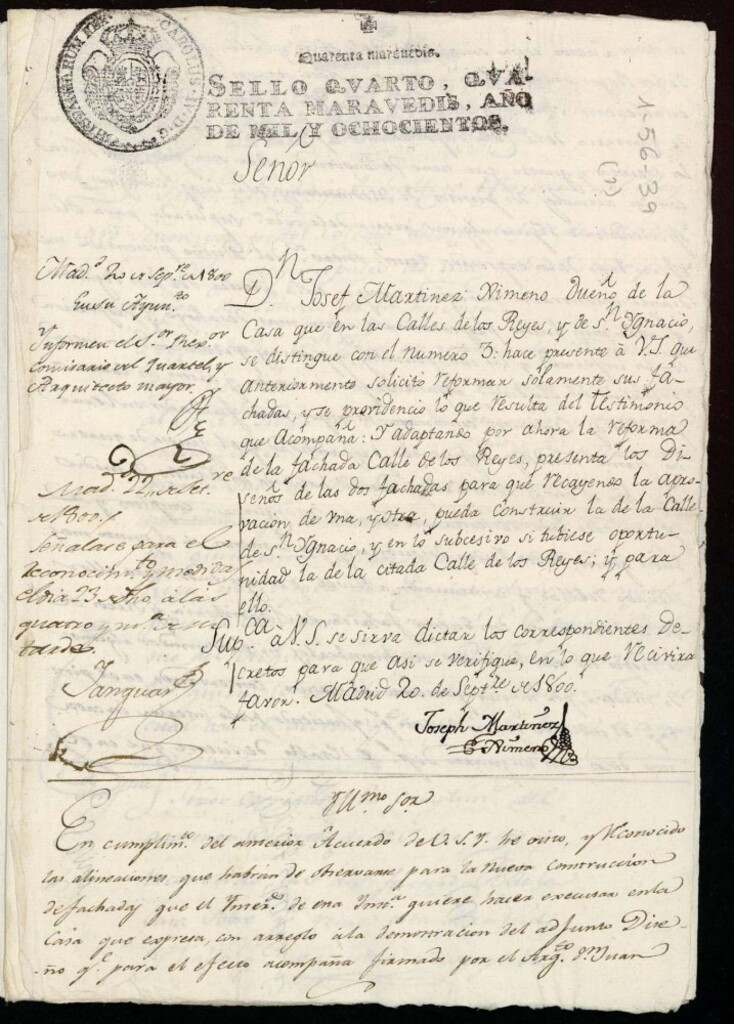 CAROLUS IV D G HISPANIARUM REX
Quarenta maravedis.
SELLO QVARTO, QVA
RENTA MARAVEDIS, AÑO
DE MIL Y OCHOCIENTOS.
1-56-39
(1)
Señor
Mad.d 20 de Sep.re de 1800
En su Ayun.to
Informen el S.or Rex.or
comisario del Quartel, y
Arquitecto mayor.
Mad.d 22, de Set.re
de 1800,,
Señalase para el
reconocim.to y medida
el dia 23 de dho, a las
quatro y m.a de su
tarde.
D.n Josef Martinez Nimeno Dueño de la
Casa que en las Calles de los Reyes, y de S.n Ygnacio,
se distingue con el numero 3: hace presente à V.S. que
anteriormente solicitò reformar solamente sus fa-
chadas, y se providenciò lo que resulta del testimonio
que acompaña: Y adaptando por ahora la reforma
de la fachada Calle de los Reyes, presenta los Di-
seños de las dos fachadas para que recayendo la apro-
vacion, de una, y otra, pueda construir la de la Calle
de S.n Ygnacio, y en lo subcesivo si tubiese oportu-
nidad la de la citada Calle de los Reyes; y para
ello.
Sup.ca à V.S. se sirva dictar los correspondientes De-
cretos para que asi se verifique, en lo que recivira
favor. Madrid 20. de Sept.re de 1800.
Joseph Martinez
Nimeno
Yll.mo Sor
En cumplim.to del anterior Acuerdo de V.S.Y. he visto, y Reconocido
las alineaciones que habrán de observarse para la Nueva Construccion
de fachadas que el Ynter.do de esa Ynst.a quiere hacer executar en la
Casa que expresa, con arreglo à la demostracion del adjunto Dise-
-ño q.e para el efecto acompaña firmado por el Arq.to D.n Juan